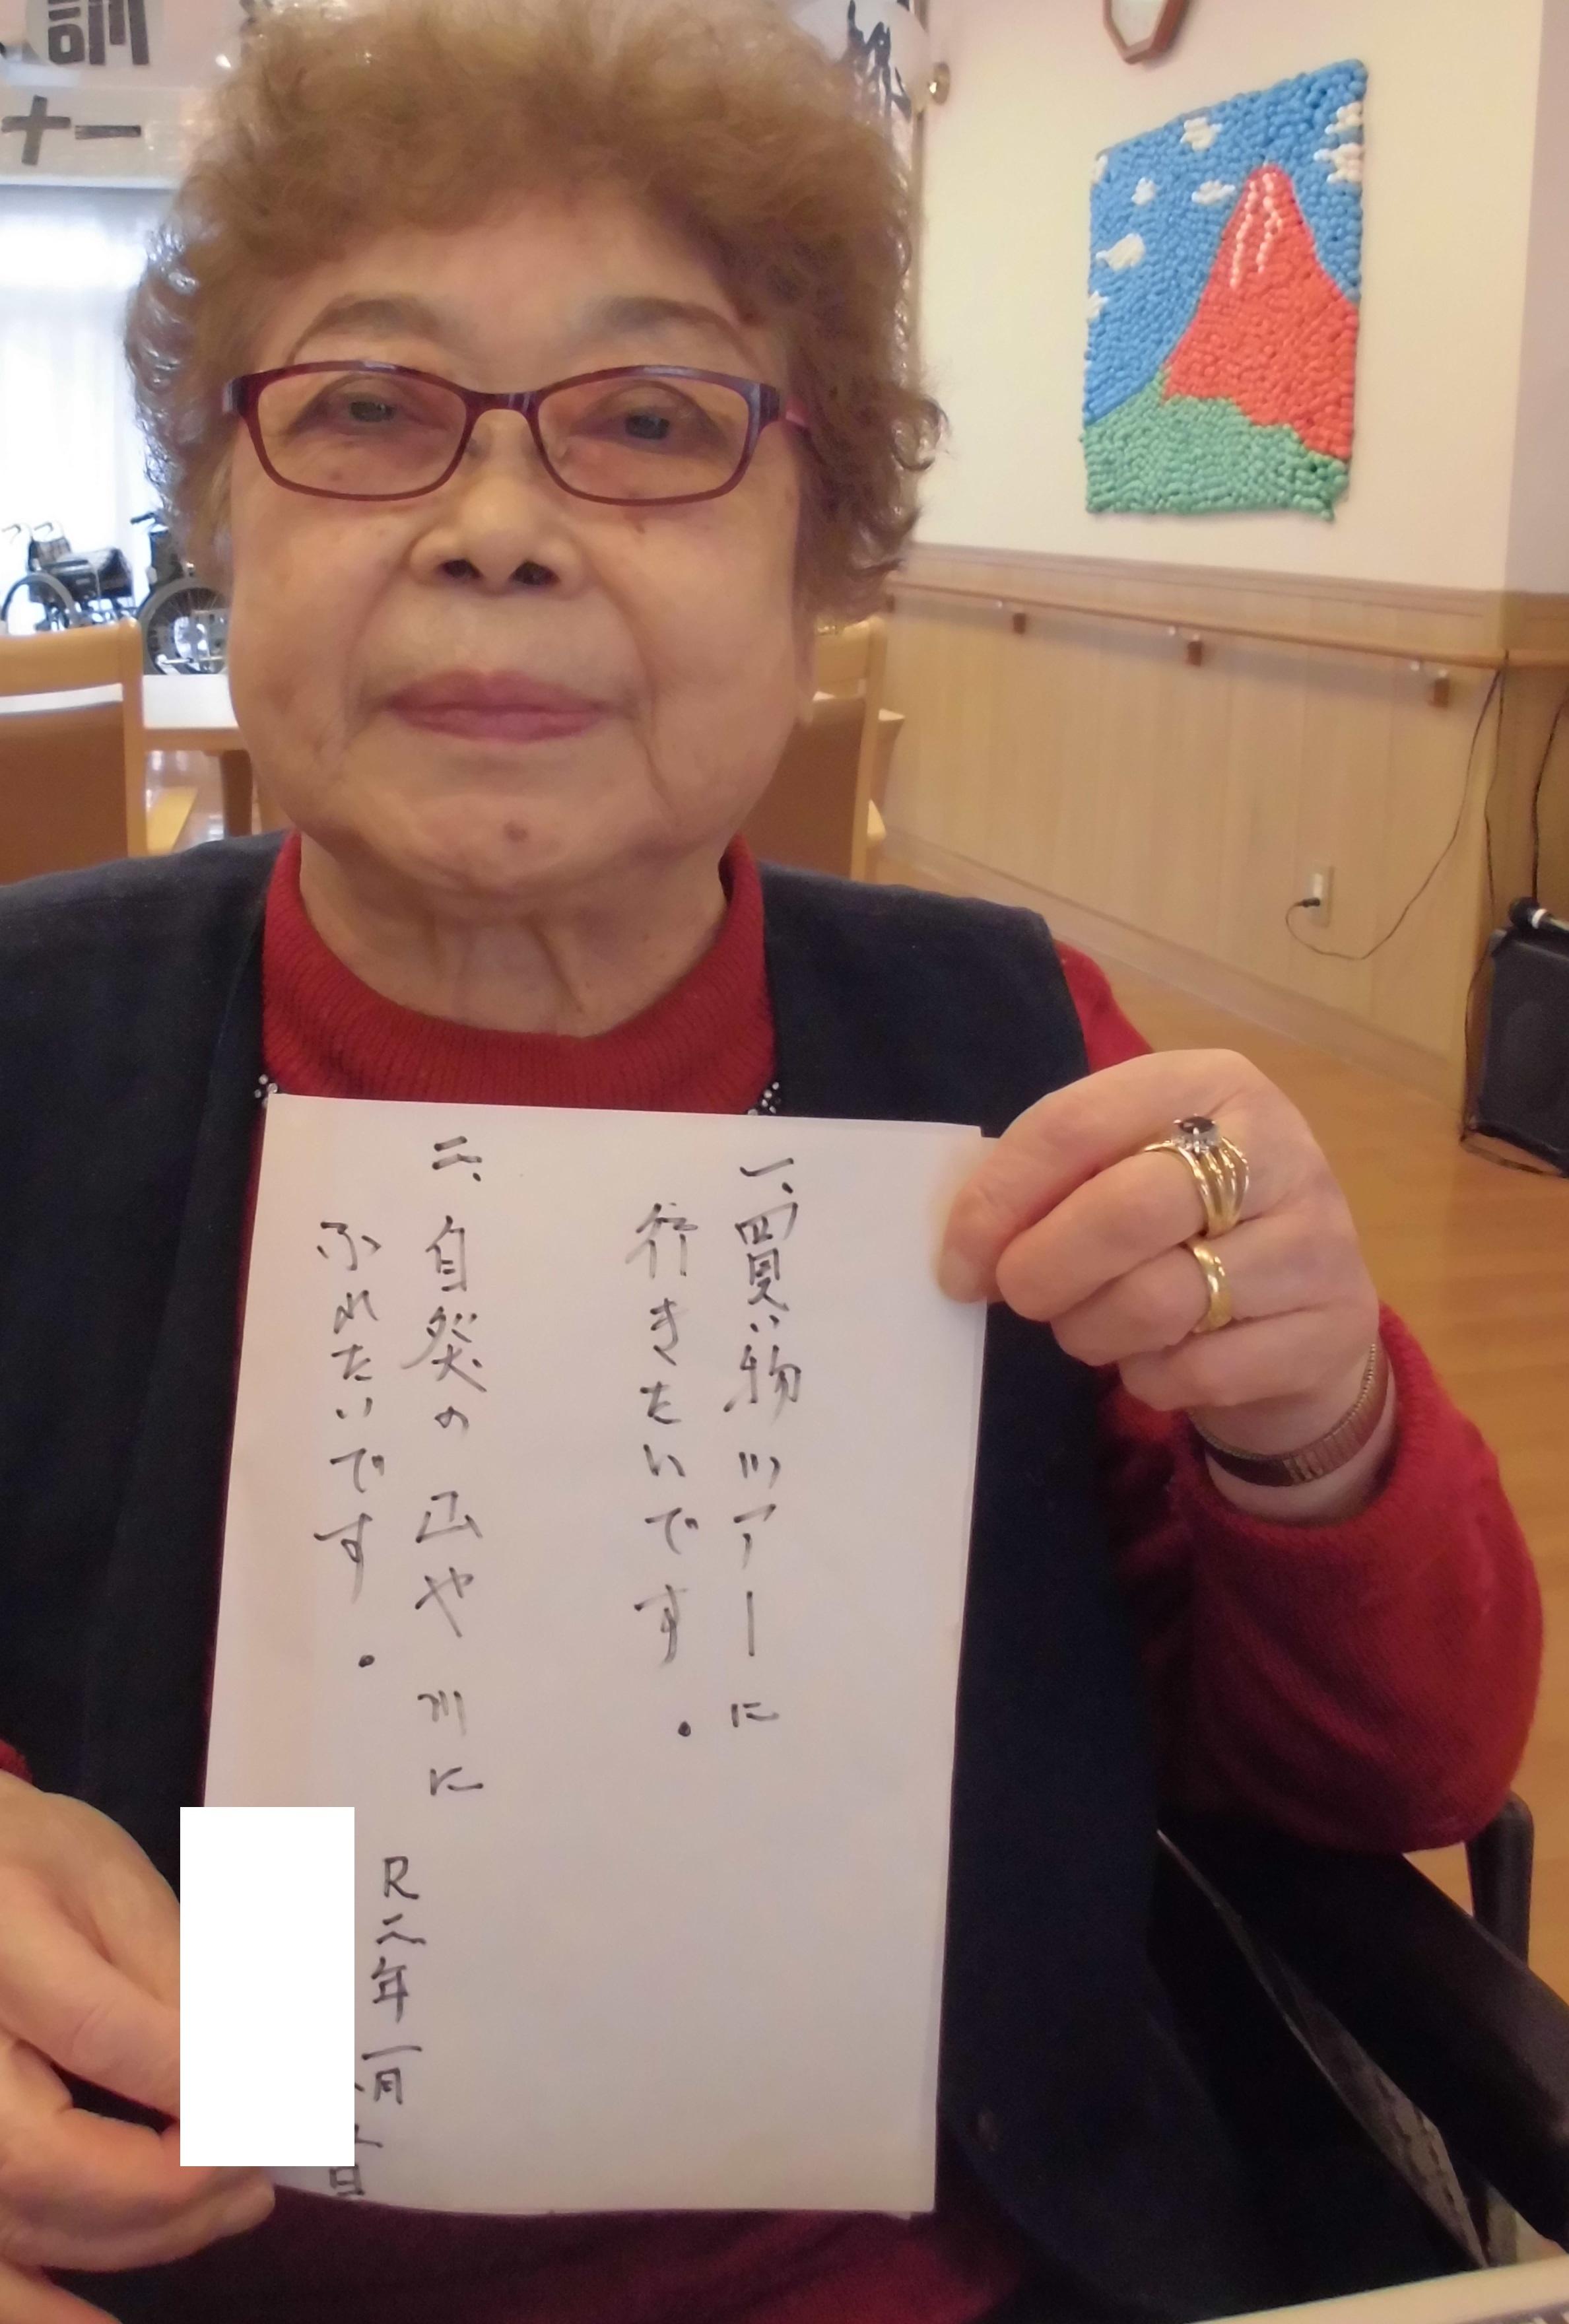 一、買い物ツアーに
行きたいです.
二、自然の山や川に
ふれたいです.
R二年一月
日
訓
十一